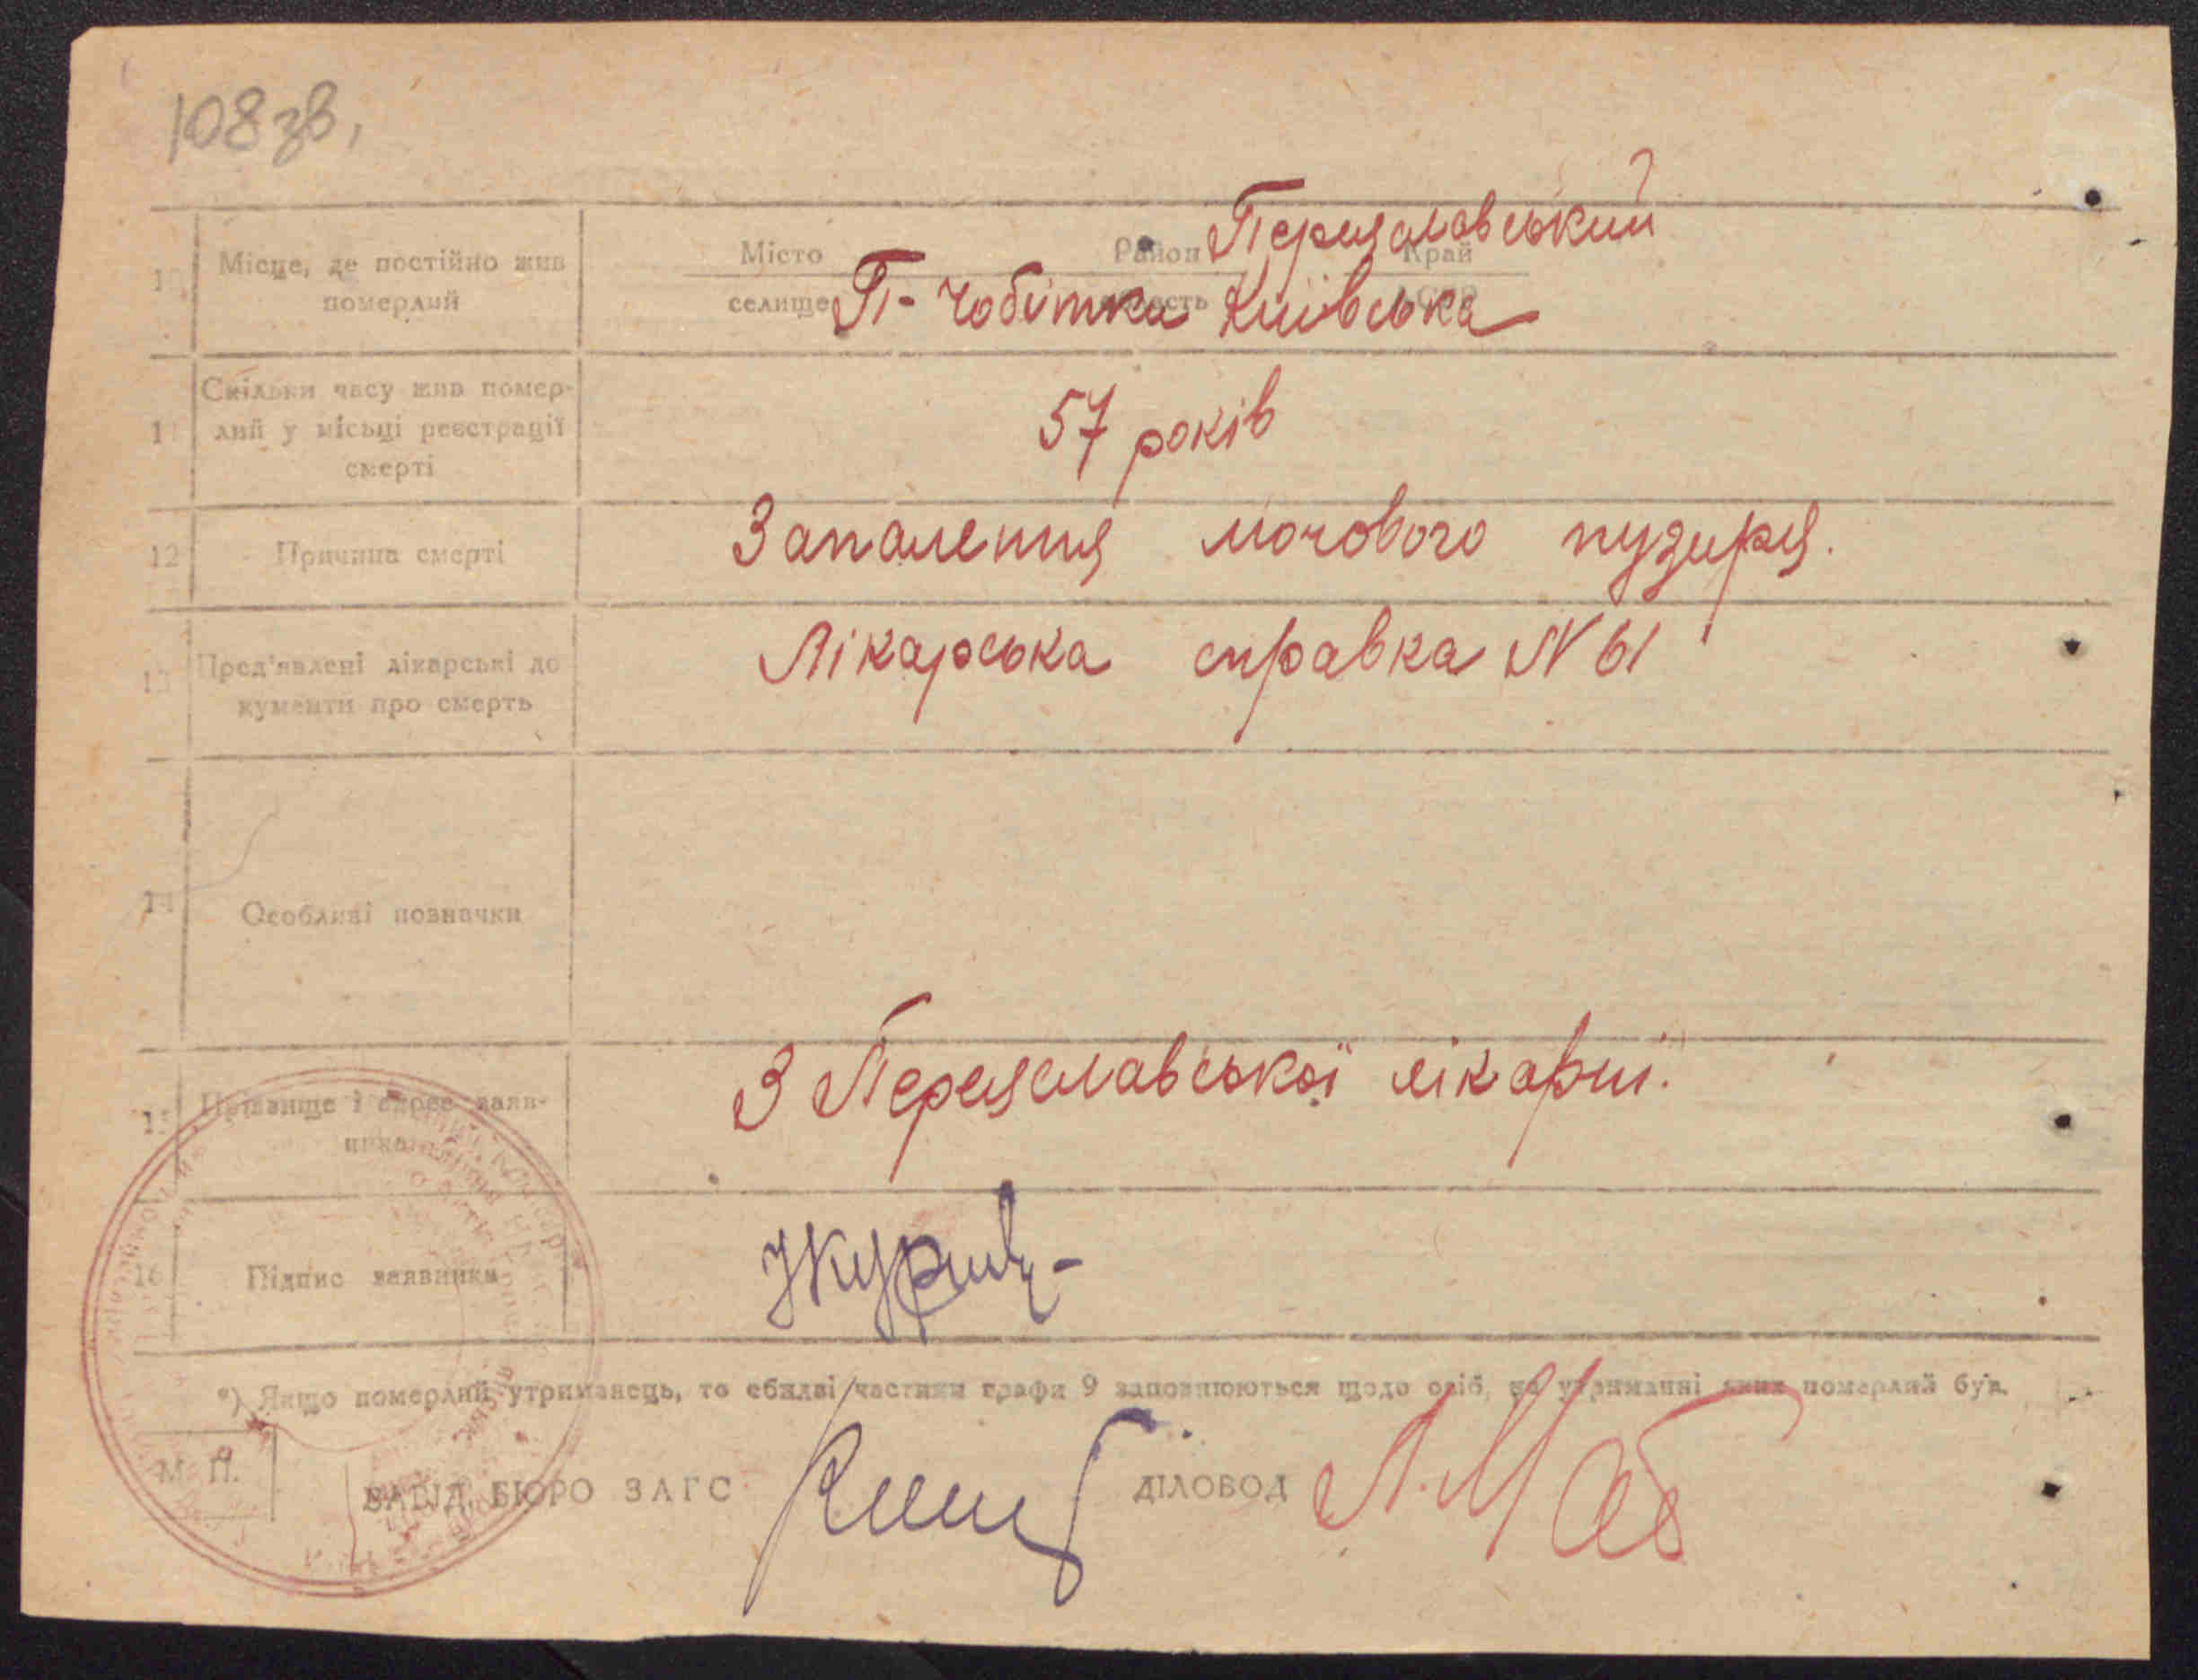 108 зв,
Переяславський
10 Місце, де постійно жив Місто Район Край
померлий селище П-Чобітка область Київська АССР
Скільки часу жив помер-
11 лий у місьці реєстрації 57 років
смерті
12 Причина смерті Запалення мочового пузиря.
13 Пред'явлені лікарські до Лікарська справка N 61
кументи про смерть
14 Особливі позначки
15 Прізвище і адрес заяв- З Переяславської лікарні.
ника
16 Підпис заявника
*) Якщо померлий утриманець, то обидві частини графи 9 заповнюються щодо осіб, на утриманні яких померлий був.
М. П.
ЗАВІД. БЮРО ЗАГС ДІЛОВОД